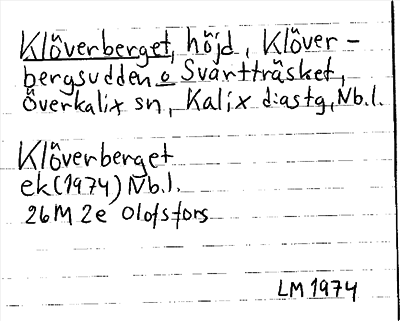 Klöverberget, höjd, Klöver-
bergsudden o Svartträsket,
Överkalix sn, Kalix d:astg, Nb.l.
Klöverberget
ek (1974) Nb.l.
26M 2e Olofsfors
LM 1974